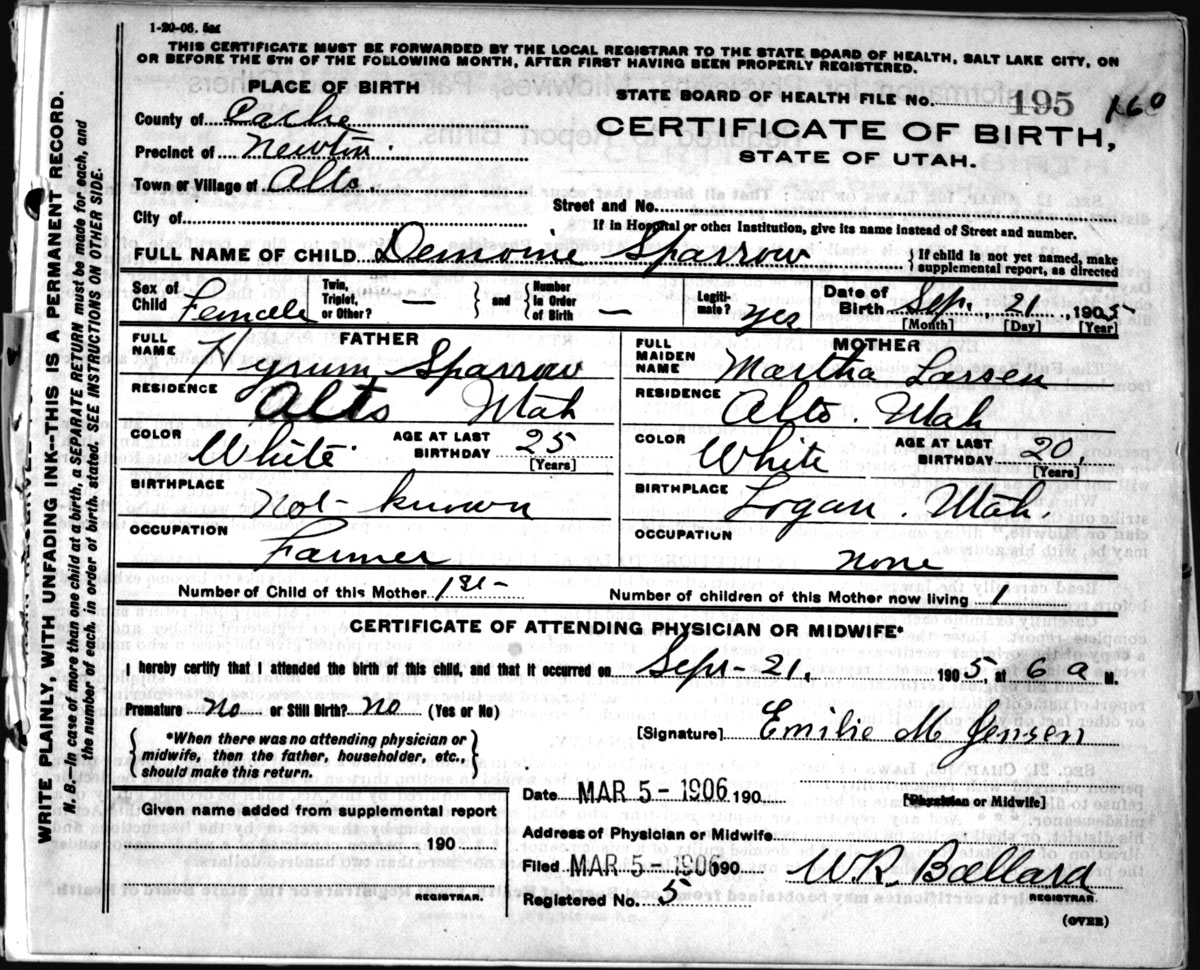 1-20-06. 5M
THIS CERTIFICATE MUST BE FORWARDED BY THE LOCAL REGISTRAR TO THE STATE BOARD OF HEALTH, SALT LAKE CITY, ON
OR BEFORE THE 5TH OF THE FOLLOWING MONTH, AFTER FIRST HAVING BEEN PROPERLY REGISTERED.
PLACE OF BIRTH
County of Cache
Precinct of Newton.
Town or Village of Alto.
City of
STATE BOARD OF HEALTH FILE NO. 195 160
CERTIFICATE OF BIRTH,
STATE OF UTAH.
Street and No.
If in Hospital or other Institution, give its name instead of Street and number.
FULL NAME OF CHILD Demoine Sparrow } If child is not yet named, make
supplemental report, as directed
Sex of Child Female Twin, Triplet, or Other? { } and { Number in Order of Birth — Legiti-mate? yes Date of Birth Sep. 21, 1905
[Month] [Day] [Year]
FATHER
FULL NAME Hyrum Sparrow
RESIDENCE Alto Utah
COLOR White AGE AT LAST BIRTHDAY 25 [Years]
BIRTHPLACE Not known
OCCUPATION Farmer
MOTHER
FULL MAIDEN NAME Martha Larsen
RESIDENCE Alto. Utah
COLOR White AGE AT LAST BIRTHDAY 20 [Years]
BIRTHPLACE Logan. Utah.
OCCUPATION none
Number of Child of this Mother 1st- Number of children of this Mother now living 1
CERTIFICATE OF ATTENDING PHYSICIAN OR MIDWIFE*
I hereby certify that I attended the birth of this child, and that it occurred on Sept-21, 1905, at 6 a M.
Premature no or Still Birth? no (Yes or No)
{ *When there was no attending physician or
midwife, then the father, householder, etc.,
should make this return. }
[Signature] Emilie M Jensen
[Physician or Midwife]
Date MAR 5-1906 190
Given name added from supplemental report
190
REGISTRAR.
Address of Physician or Midwife
Filed MAR 5-1906 190 WR Ballard
REGISTRAR.
Registered No. 5
(OVER)
WRITE PLAINLY, WITH UNFADING INK--THIS IS A PERMANENT RECORD.
N. B.--In case of more than one child at a birth, a SEPARATE RETURN must be made for each, and
the number of each, in order of birth, stated. SEE INSTRUCTIONS ON OTHER SIDE.